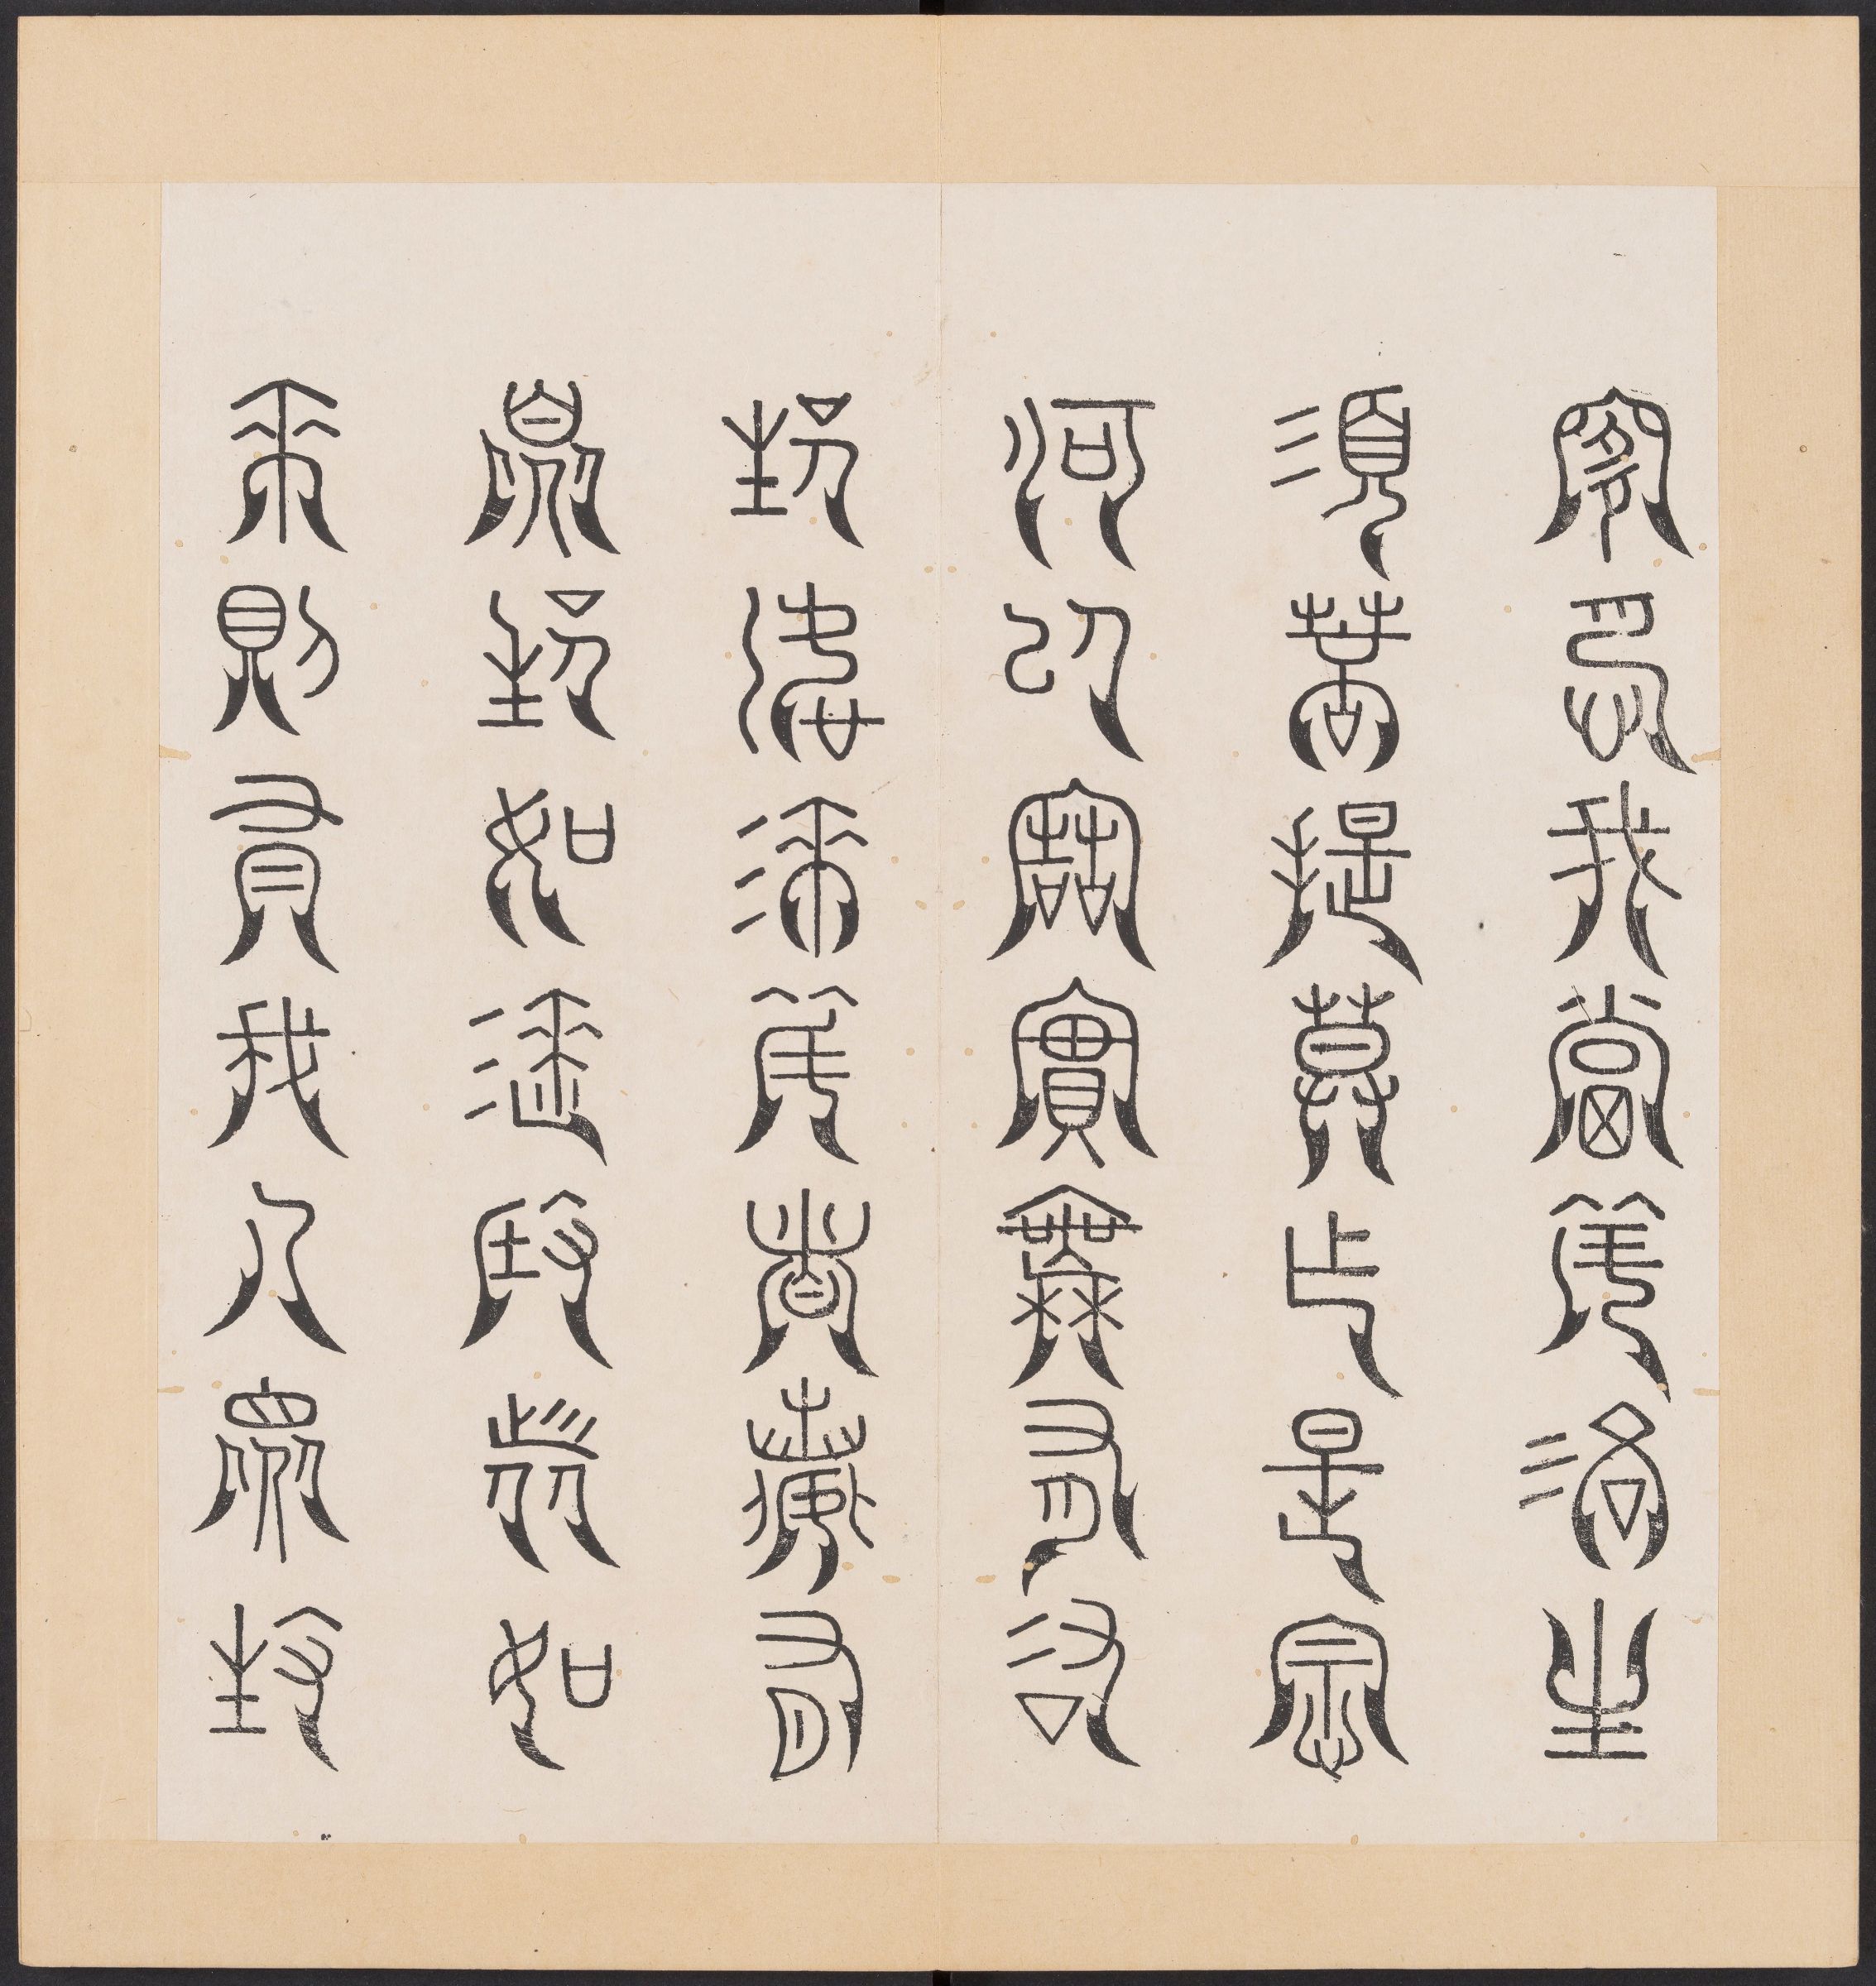 是念我當度衆生
須菩提莫作是念
何以故實無有衆
生如來度者若有
衆生如來度者如
來則有我人衆生